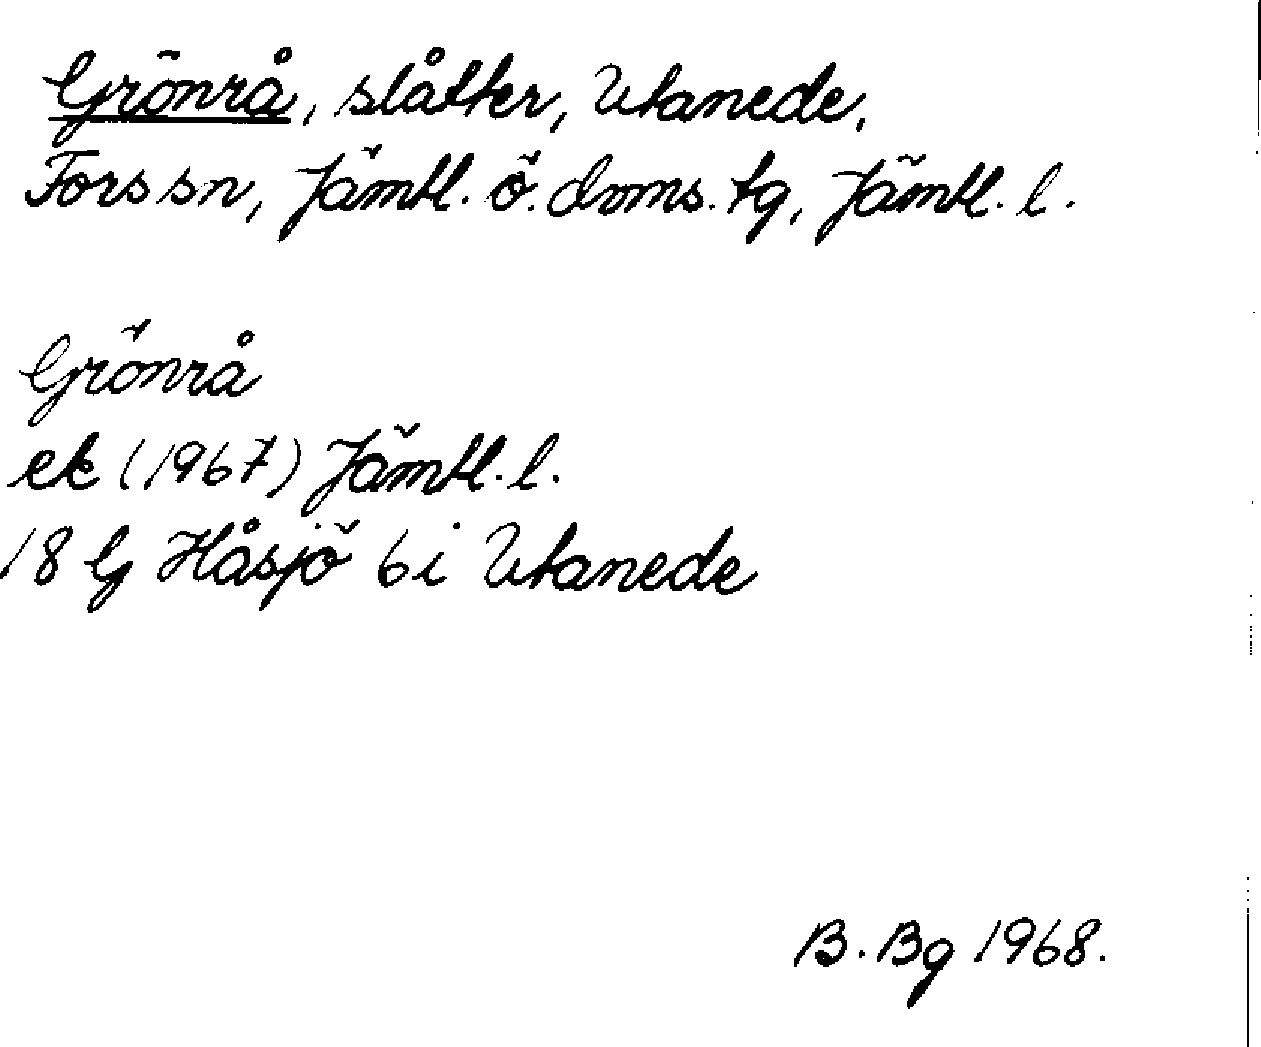 Grönrå, slåtter, Utanede,
Fors sn, Jämtl. ö. doms. tg, Jämtl. l.
Grönrå
ek (1967) Jämtl. l.
18 G Håsjö 6 i Utanede
B. Bg 1968.